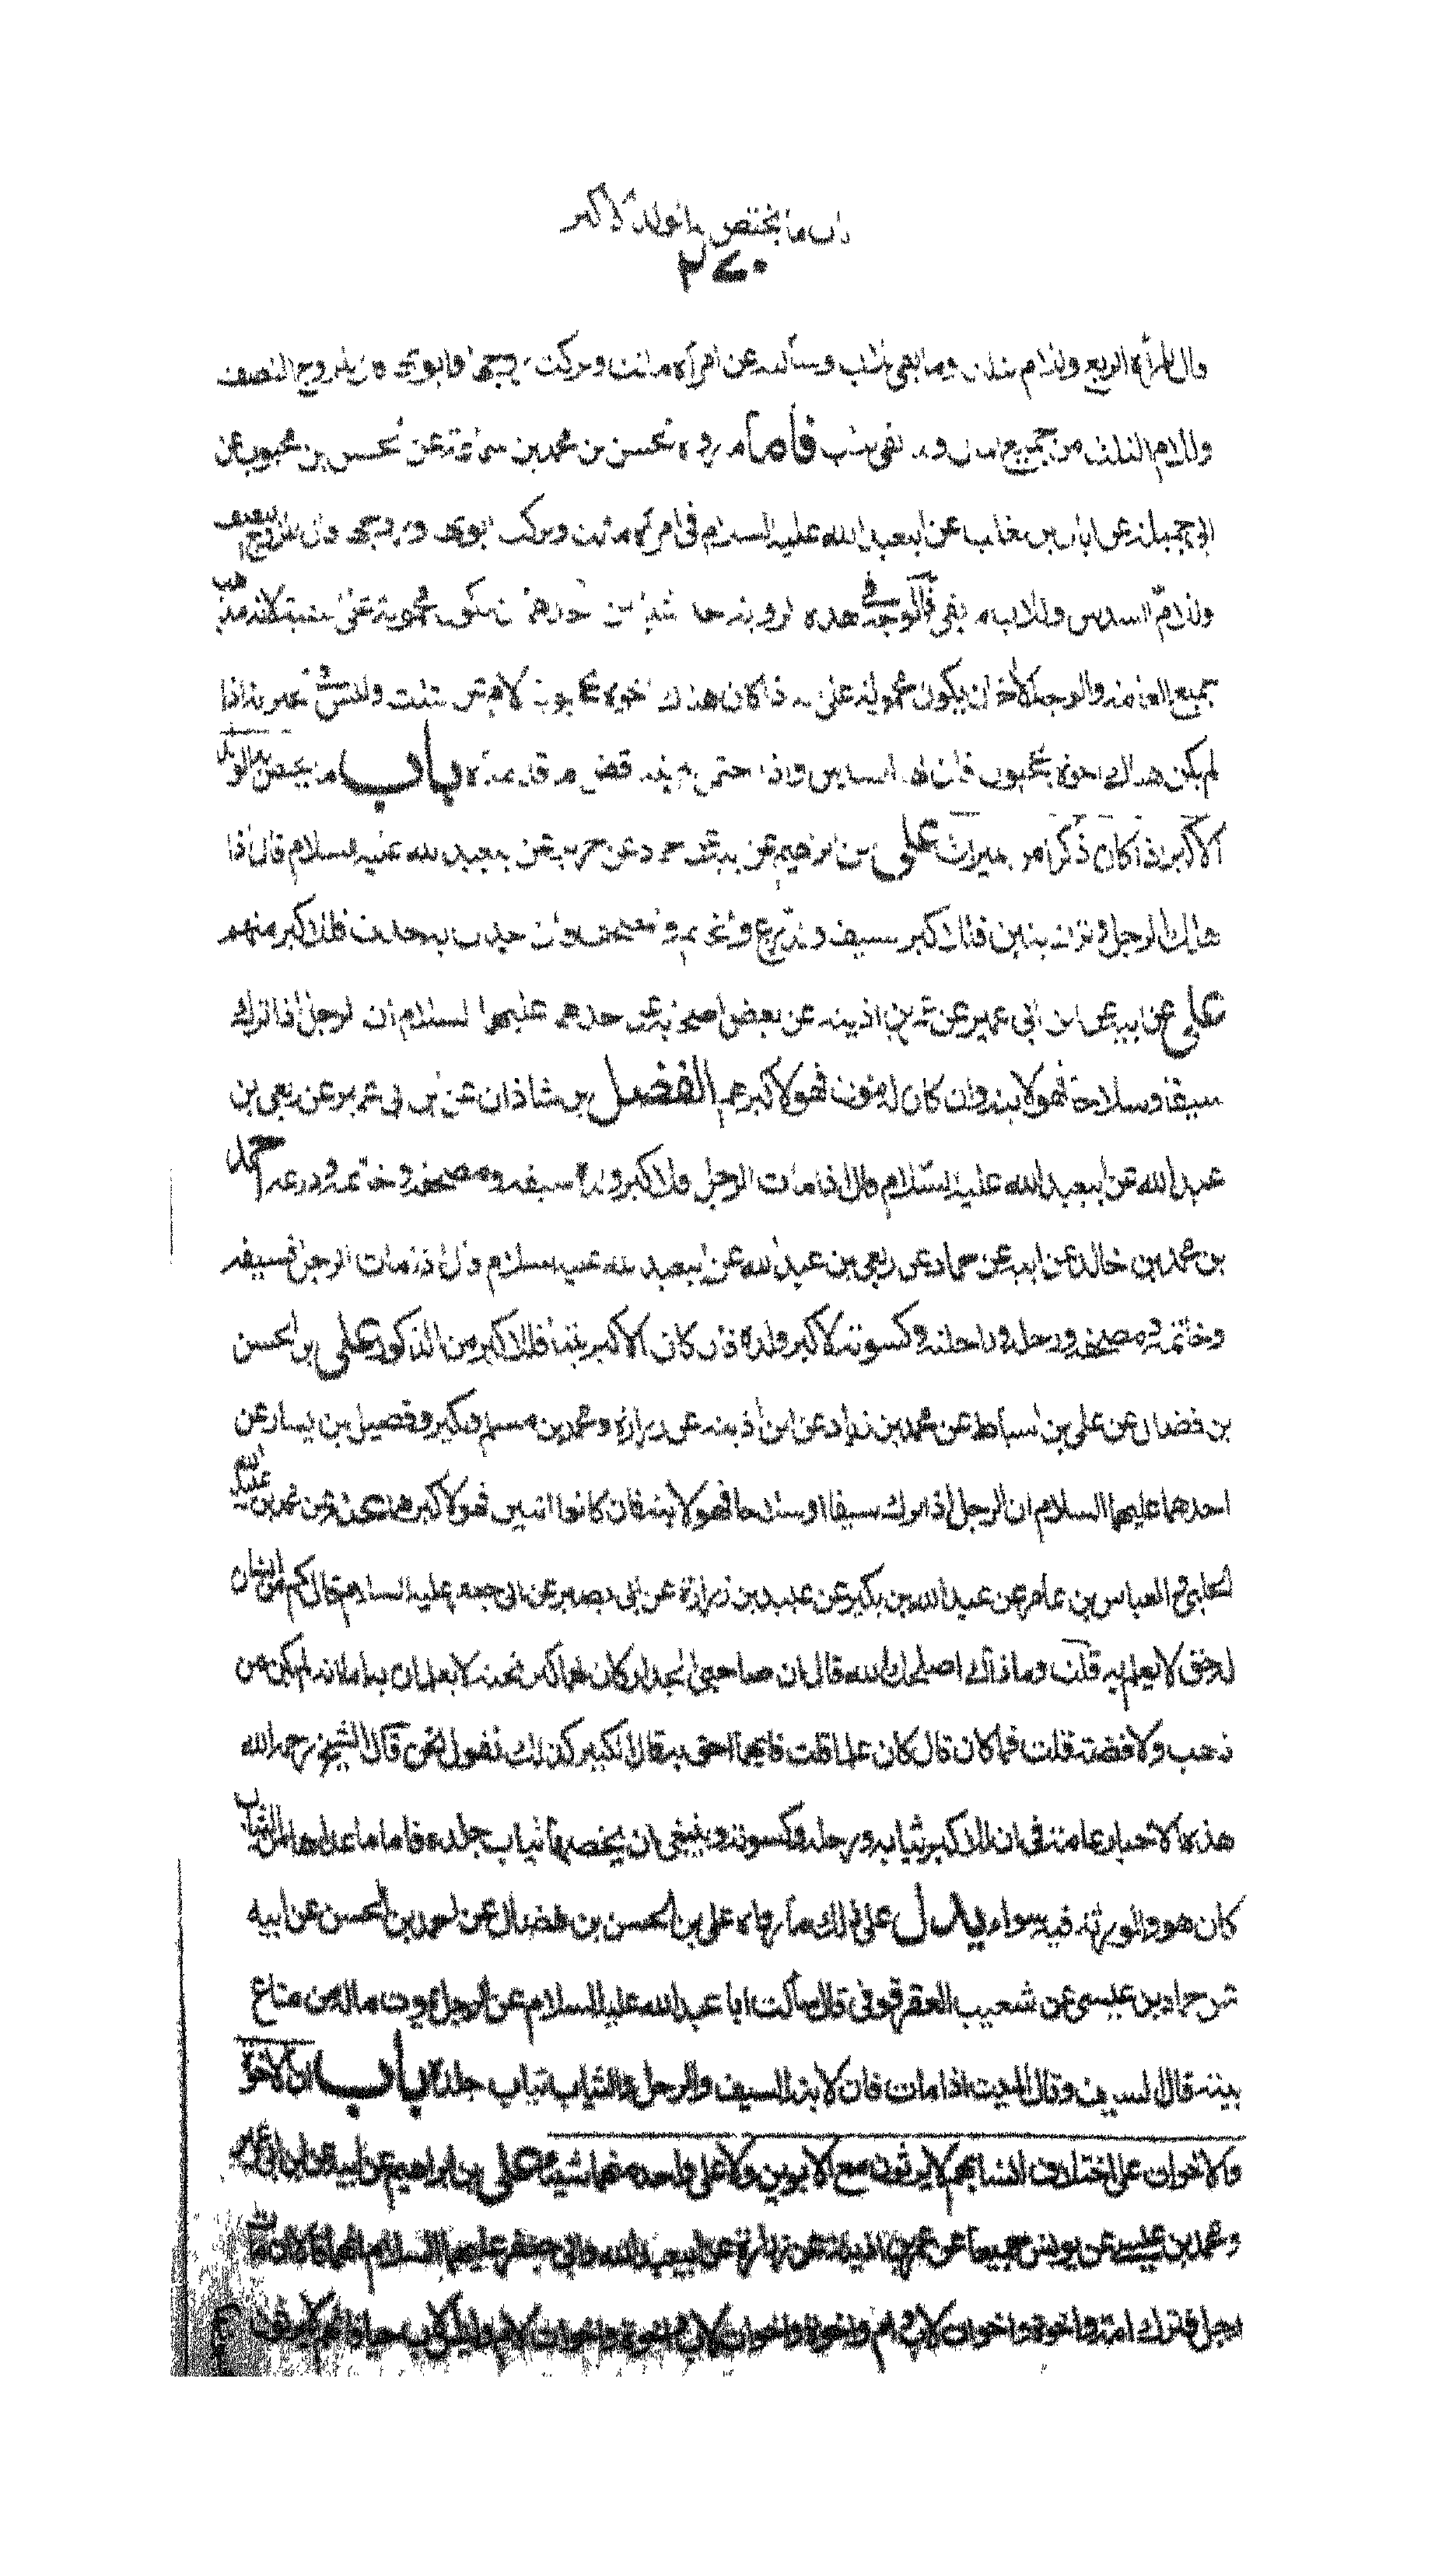 باب ما يختص به الولد الاكبر
٢٧٠
قال للمرأة الربع وللام الثلث وما بقي للاب وسألته عن امرأة ماتت وتركت زوجها وابويها قال للزوج النصف
وللام الثلث من جميع المال وما بقي للاب فاما ما رواه الحسن بن محمد بن سماعة عن الحسن بن محبوب عن
ابي جميلة عن ابان بن تغلب عن ابيعبدالله عليه السلام في امرأة ماتت وتركت ابويها وزوجها قال للزوج النصف
وللام السدس وللاب ما بقي فالوجه في هذه الرواية احد شيئين احدهما ان يكون محمولة على التقية لانه مذهب
جميع العامة والوجه الاخر ان يكون محمولة على انه اذا كان هناك اخوة يحجبون الام عن الثلث وليس في الخبر انه اذا
لم يكن هناك اخوة يحجبون فان لها السدس واذا احتمل ذلك باب ما يختص به الولد
الاكبر اذا كان ذكرا من الميراث علي بن ابراهيم عن ابيه عن حماد عن حريز عن ابيعبد الله عليه السلام قال اذا
هلك الرجل وترك بنين فللاكبر السيف والدرع والخاتم والمصحف فان حدث به حدث فللاكبر منهم
علي عن ابيه عن ابن ابي عمير عن عمر بن اذينه عن بعض اصحابه عن احدهما عليهما السلام ان الرجل اذا ترك
سيفا وسلاحا فهو لابنه وان كان له بنون فهو لاكبرهم الفضل بن شاذان عن ابن ابي عمير عن ربعي بن
عبدالله عن ابيعبدالله عليه السلام قال اذا مات الرجل فلاكبر ولده سيفه ومصحفه وخاتمه ودرعه احمد
بن محمد بن خالد عن ابيه عن حماد عن ربعي بن عبدالله عن ابيعبد الله عليه السلام قال اذا مات الرجل فسيفه
وخاتمه ومصحفه ورحله وراحلته وكسوته لاكبر ولده فان كان الاكبر بنتا فللاكبر من الذكور علي بن الحسن
بن فضال عن علي بن اسباط عن محمد بن زياد عن ابن اذينه عن زرارة ومحمد بن مسلم وبكير وفضيل بن يسار عن
احدهما عليهما السلام ان الرجل اذا ترك سيفا او سلاحا فهو لابنه فان كانوا اثنين فهو لاكبرهما عنه عن محمد بن عبيدالله
الحلبي والعباس بن عامر عن عبدالله بن بكير عن عبيد بن زرارة عن ابي بصير عن ابي جعفر عليه السلام قال كم من انسان
له حق لا يعلم به قلت وما ذاك اصلحك الله قال ان صاحبي الجدار كان لهما كنز تحته لا يعلمان به اما انه لم يكن من
ذهب ولا فضة قلت فما كان قال كان علما قلت فايهما احق به قال الكبير كذلك نقول نحن قال الشيخ رحمه الله
هذه الاخبار عامة في ان للاكبر ثيابه ورحله وكسوته وينبغي ان يخصها ثياب جلده فاما ما عداها من الثياب
كان هو والورثة فيه سواء يدل على ذلك ما رواه علي بن الحسن بن فضال عن احمد بن الحسن عن ابيه
عن حماد بن عيسى عن شعيب العقرقوفي قال سألت ابا عبدالله عليه السلام عن الرجل يموت ماله من متاع
بيته قال السيف وقال الميت اذا مات فان لابنه السيف والرحل والثياب ثياب جلده باب ان الاخوة
والاخوات على اختلاف انسابهم لا يرثون مع الابوين ولا على واحد منهما شيئا علي بن ابراهيم عن ابيه عن ابن ابي عمير
ومحمد بن عيسى عن يونس جميعا عن عمر بن اذينه عن زرارة عن ابيعبدالله وابي جعفر عليهما السلام انهما قالا ان مات
رجل فترك امه واخوة واخوات لاب وام واخوة واخوات لاب واخوة واخوات لام وليس الاب حيا فانهم لا يرثون